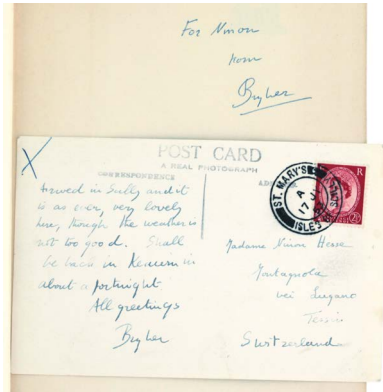 For Ninon
from
Bryher
X
POST CARD
A REAL PHOTOGRAPH
CORRESPONDENCE
AD
Arrived in Scilly and it
is as ever, very lovely
here, though the weather is
not too good. Shall
be back in Kenwin in
about a fortnight
All greetings
Bryher
ST. MARY'S
ISLES
R
2½
Madame Ninon Hesse
Montagnola
bei Lugano
Tessin
Switzerland